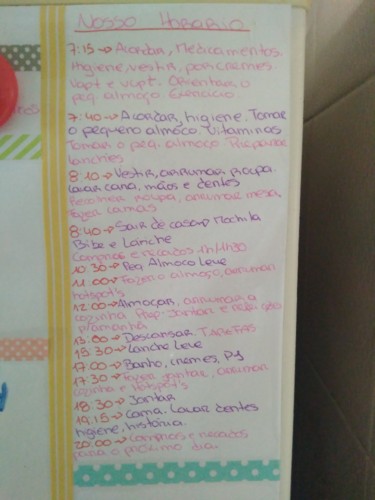 Nosso Horario
7:15 → Acordar, Medicamentos
Higiene, vestir, por cremes.
Vapt e vupt. Orientar o
peq. almoço. Exercicio.
7:40 → Acordar, higiene. Tomar
o pequeno almoço. Vitaminas
Tomar o peq. almoço. Preparar
lanches
8:10 → Vestir, arrumar roupa.
lavar cara, mãos e dentes
Recolher roupa, arrumar mesa,
fazer camas
8:40 → Sair de casa → Mochila
Bibe e Lanche
Compras e recados 1h/1h30
10:30 → Peq Almoço Leve
11:00 → Fazer o almoço, arrumar
hotspot's
12:00 → Almoçar, arrumar a
cozinha Prep. Jantar e
p/amanhã
13:00 → Descansar. TAREFAS
15:30 → Lanche Leve
17:00 → Banho, cremes, PJ
17:30 → Fazer jantar, arrumar
cozinha e hotspot's
18:30 → Jantar
19:15 → Cama. Lavar dentes
higiene, história.
20:00 → Compras e recados
para o próximo dia.